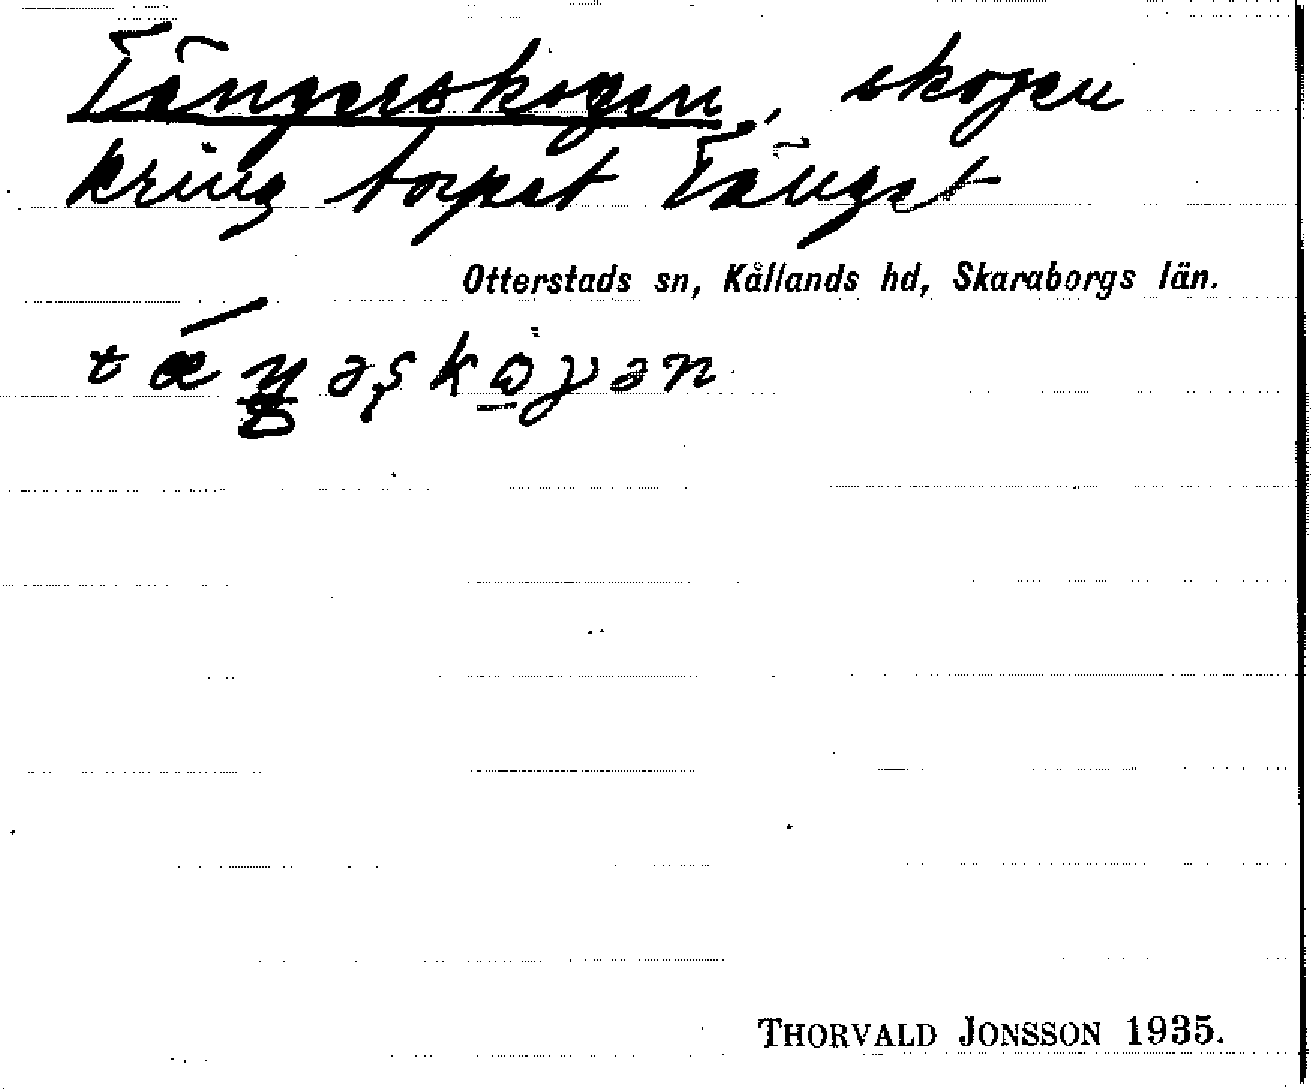 Tängetskogen, skogen
kring torpet Tänget
Otterstads sn, Kållands hd, Skaraborgs län.
THORVALD JONSSON 1935.